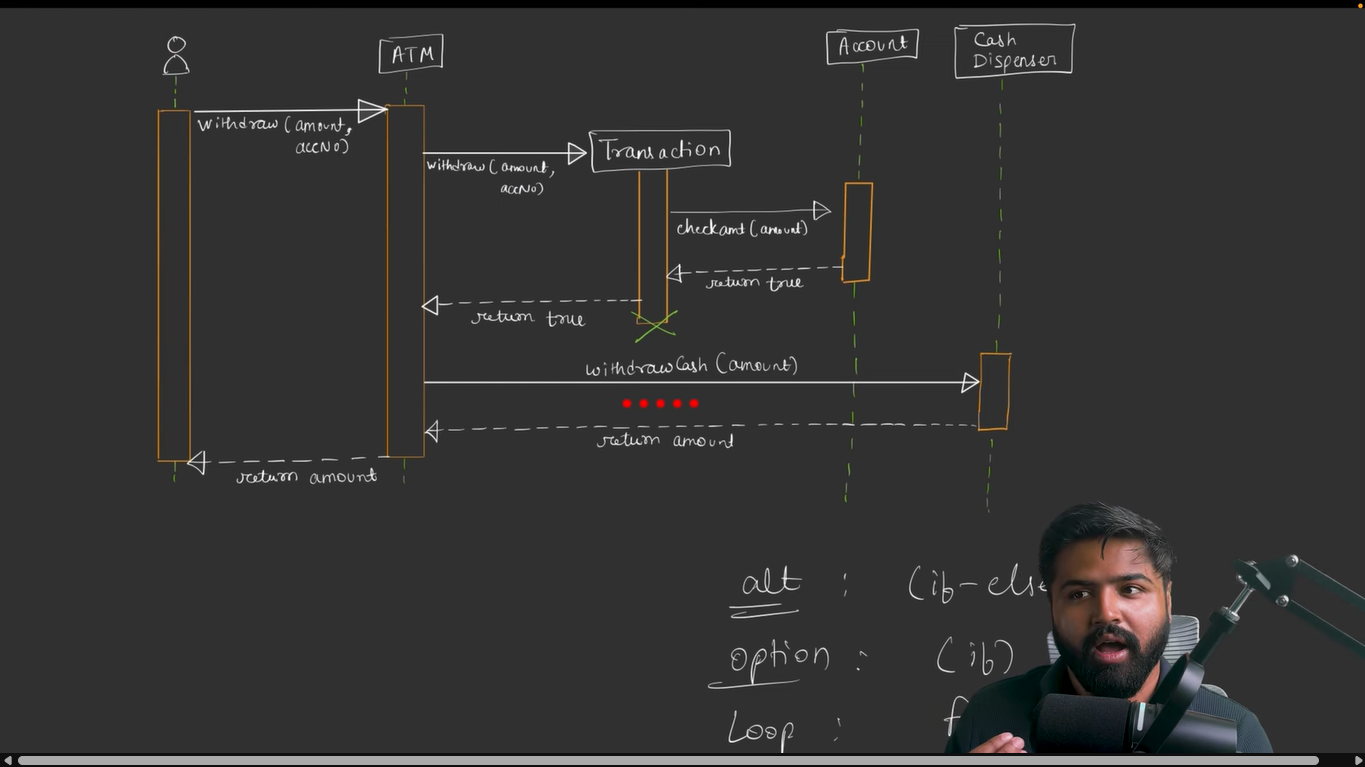 ATM
Account
Cash
Dispenser
withdraw (amount,
accNo)
Transaction
withdraw (amount,
accNo)
checkamt (amount)
return true
return true
withdrawCash (amount)
return amount
return amount
alt : (if-else
option : (if)
Loop :